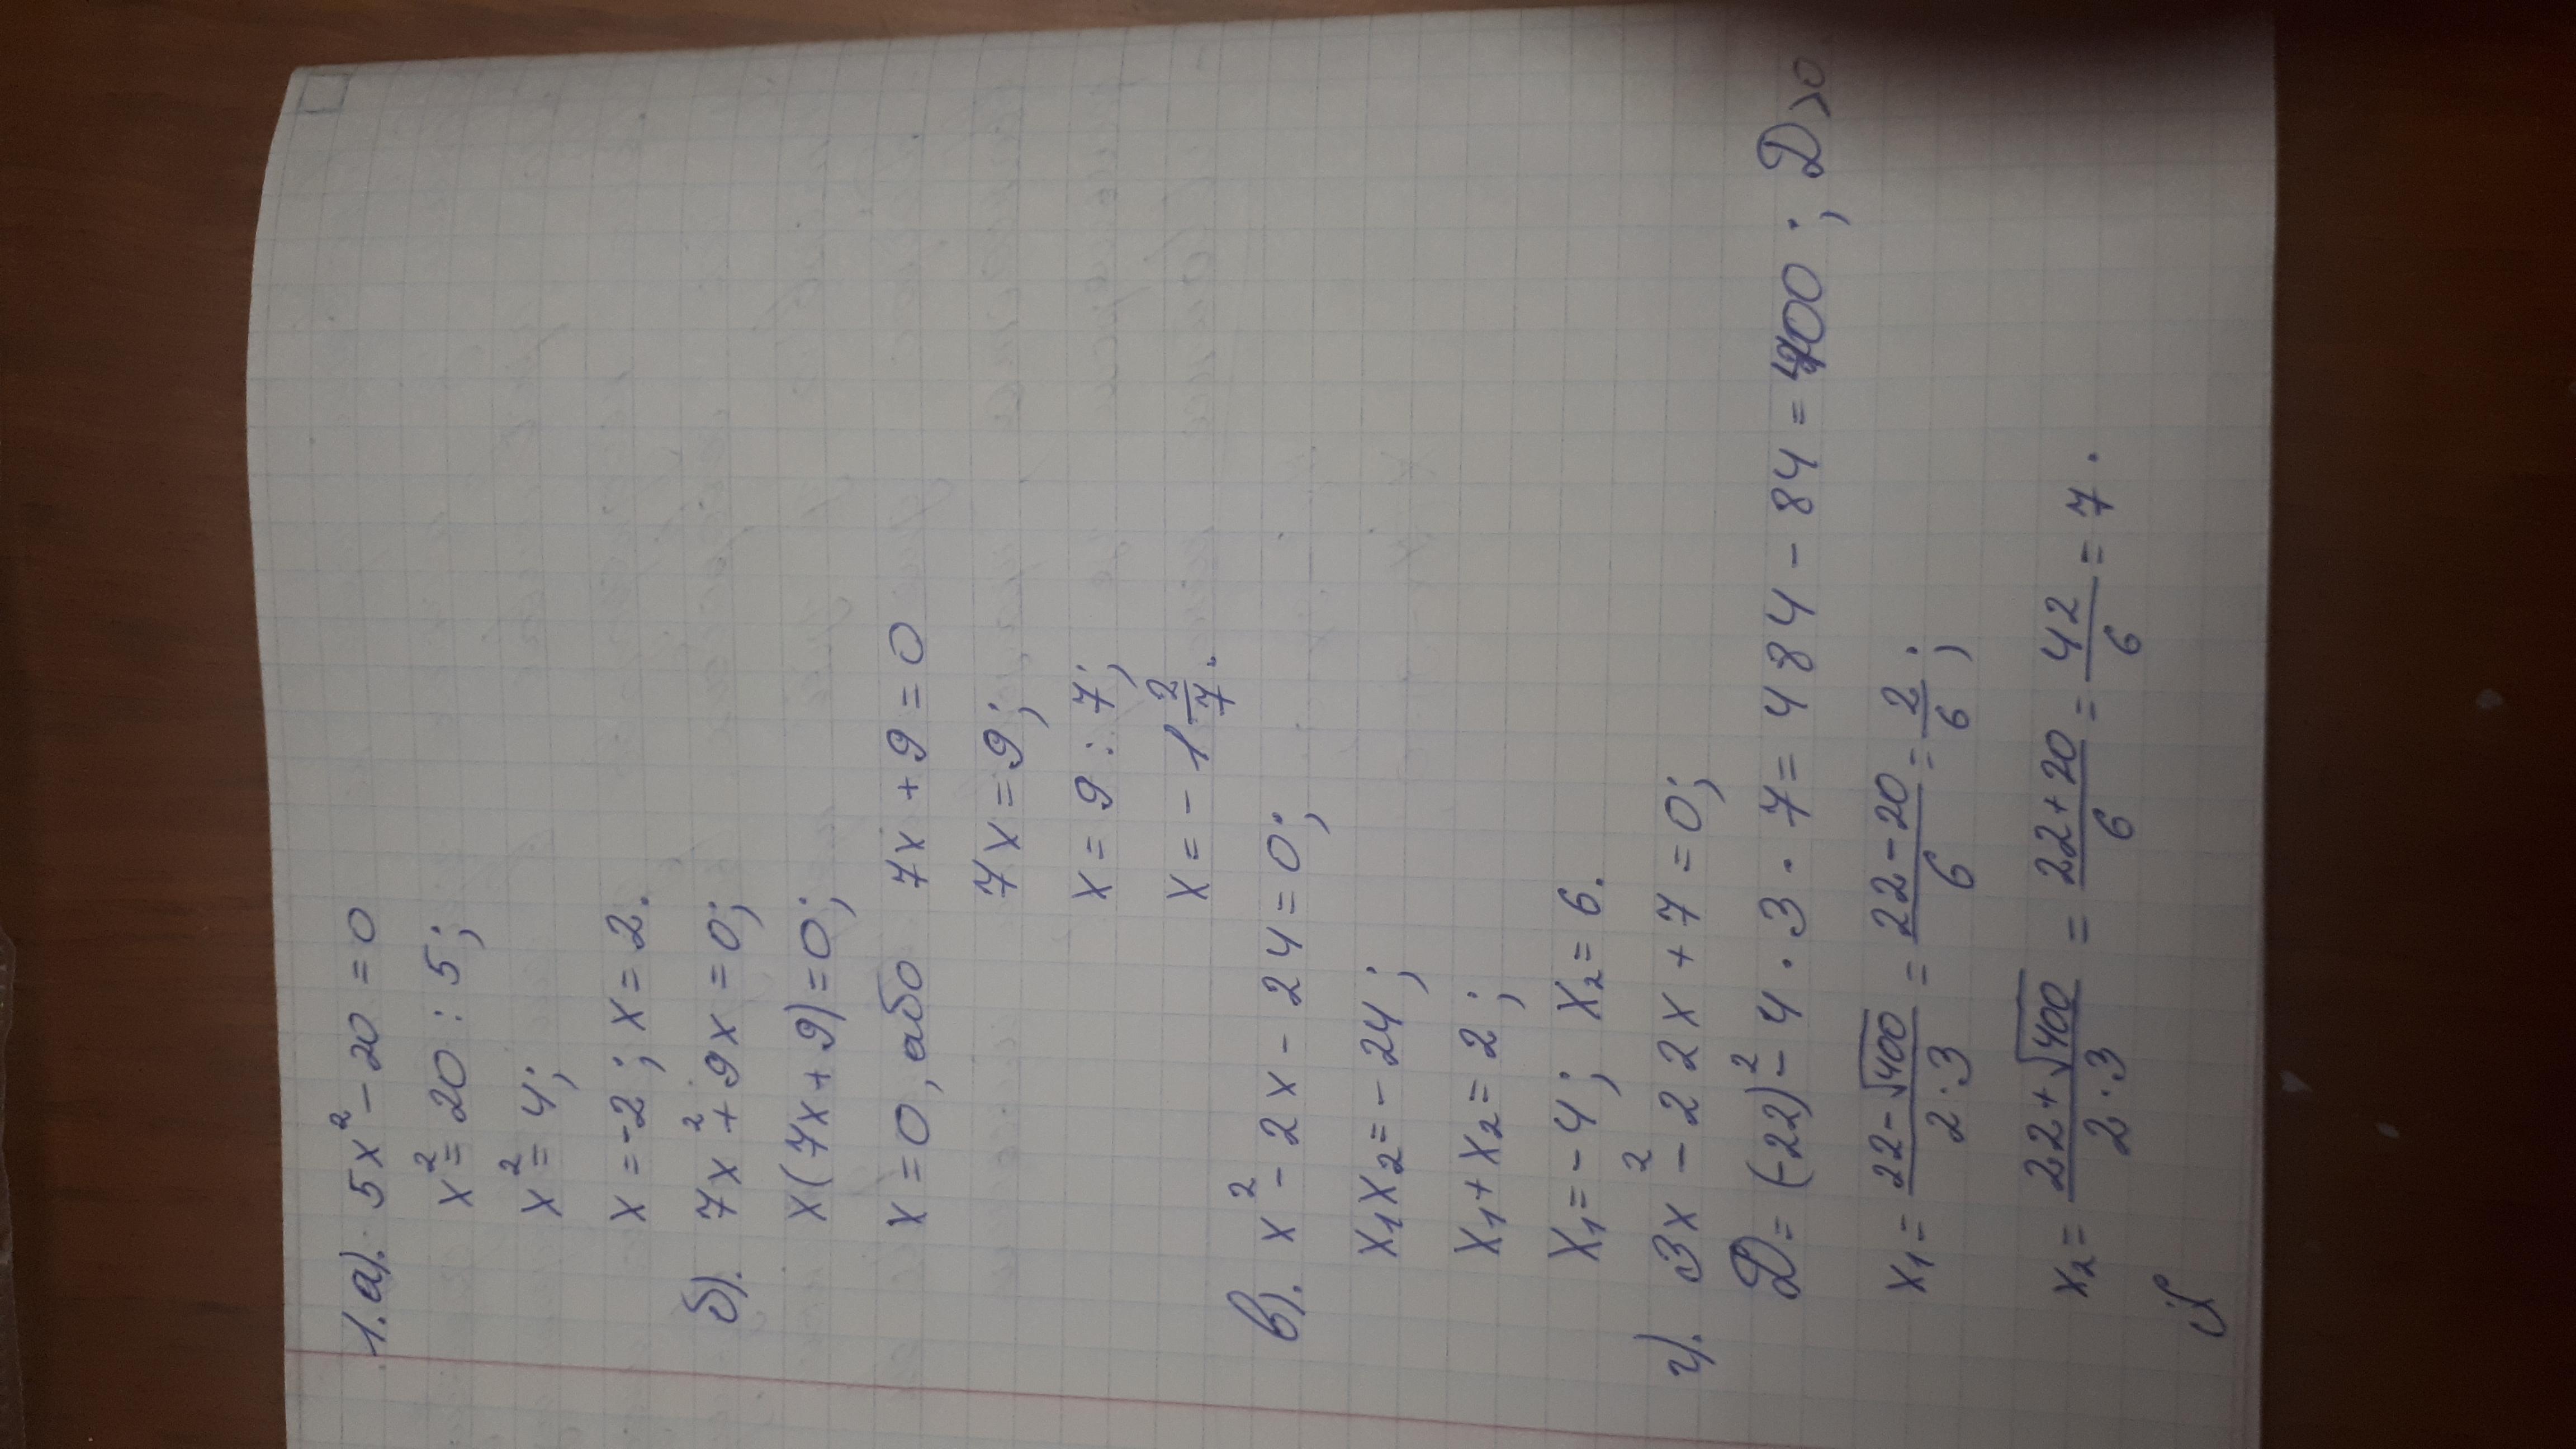 1. а). 5x² - 20 = 0
x² = 20 : 5;
x² = 4;
x = -2; x = 2.
б). 7x² + 9x = 0;
x(7x + 9) = 0;
x = 0, або 7x + 9 = 0
7x = 9;
x = 9 : 7;
x = - 1 2/7.
в). x² - 2x - 24 = 0;
x₁x₂ = - 24;
x₁ + x₂ = 2;
x₁ = - 4; x₂ = 6.
г). 3x² - 22x + 7 = 0;
D = (-22)² - 4 · 3 · 7 = 484 - 84 = 400; D > 0
x₁ = (22 - √400)/(2 · 3) = (22 - 20)/6 = 2/6;
x₂ = (22 + √400)/(2 · 3) = (22 + 20)/6 = 42/6 = 7.